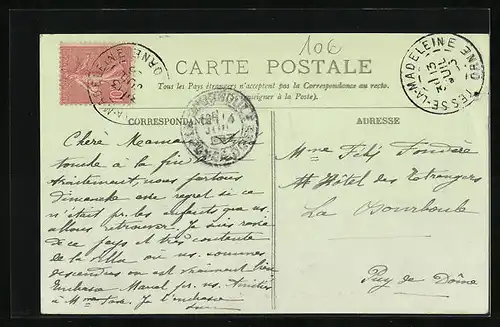 10€
CARTE POSTALE
Tous les Pays étrangers n'acceptent pas la Correspondance au recto.
(Se renseigner à la Poste).
CORRESPONDANCE
ADRESSE
TESSE-LA-MADELEINE
ORNE
Chère Maman
touche à la fin
traitement, nous partons
Dimanche avec regret si ce
n'était pr. les enfants que ns
allons retrouver. Je suis ravie
de ce pays et très contente
de la villa où ns. sommes
descendus on est vraiment bien
Embrasse Marcel pr. ns. Amitiés
à Mme Je t'embrasse
Mme Félix
Hôtel des Etrangers
La Bourboule
Puy de Dôme